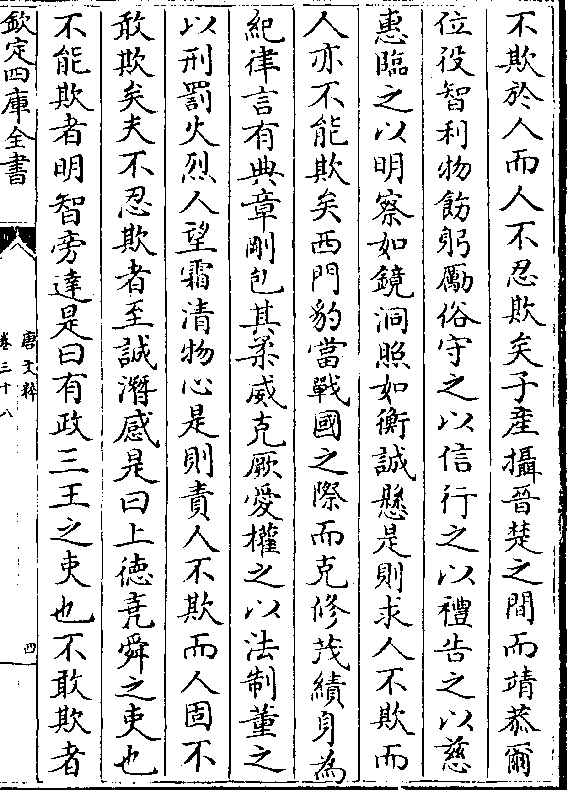 不欺於人而人不忍欺矣子產攝晉楚之間而靖恭爾
位役智利物飭躬勵俗守之以信行之以禮告之以慈
惠臨之以明察如鏡洞照如衡誠懸是則求人不欺而
人亦不能欺矣西門豹當戰國之際而克修茂績身為
紀律言有典章剛包其柔威克厥愛權之以法制董之
以刑罰火烈人望霜清物心是則責人不欺而人固不
敢欺矣夫不忍欺者至誠潛感是曰上徳堯舜之吏也
不能欺者明智旁達是曰有政三王之吏也不敢欺者
欽定四庫全書
唐文粹
卷三十八
四